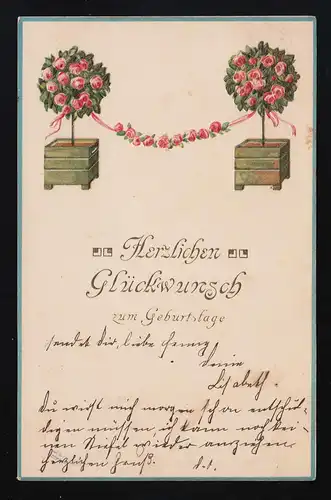 Herzlichen
Glückwunsch
zum Geburtstage
sendet Dir, liebe Fenny
Deine
Lisabeth.
Du wirst mich morgen schon entschul-
digen müssen, ich kann noch kei-
nen Stiefel wieder anziehen
Herzlichen Gruß. d. O.